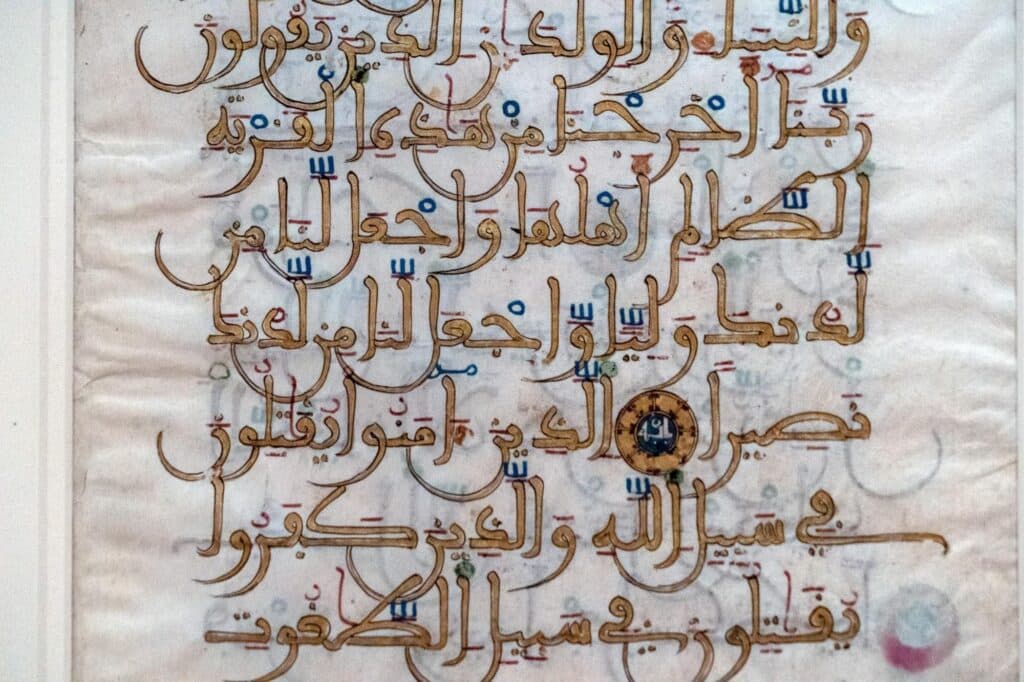 والنساء والولدن الذين يقولون
ربنا أخرجنا من هذه القرية
الظالم أهلها واجعل لنا من
لدنك وليا واجعل لنا من لدنك
نصيرا الذين ءامنوا يقتلون
في سبيل الله والذين كفروا
يقتلون في سبيل الطغوت